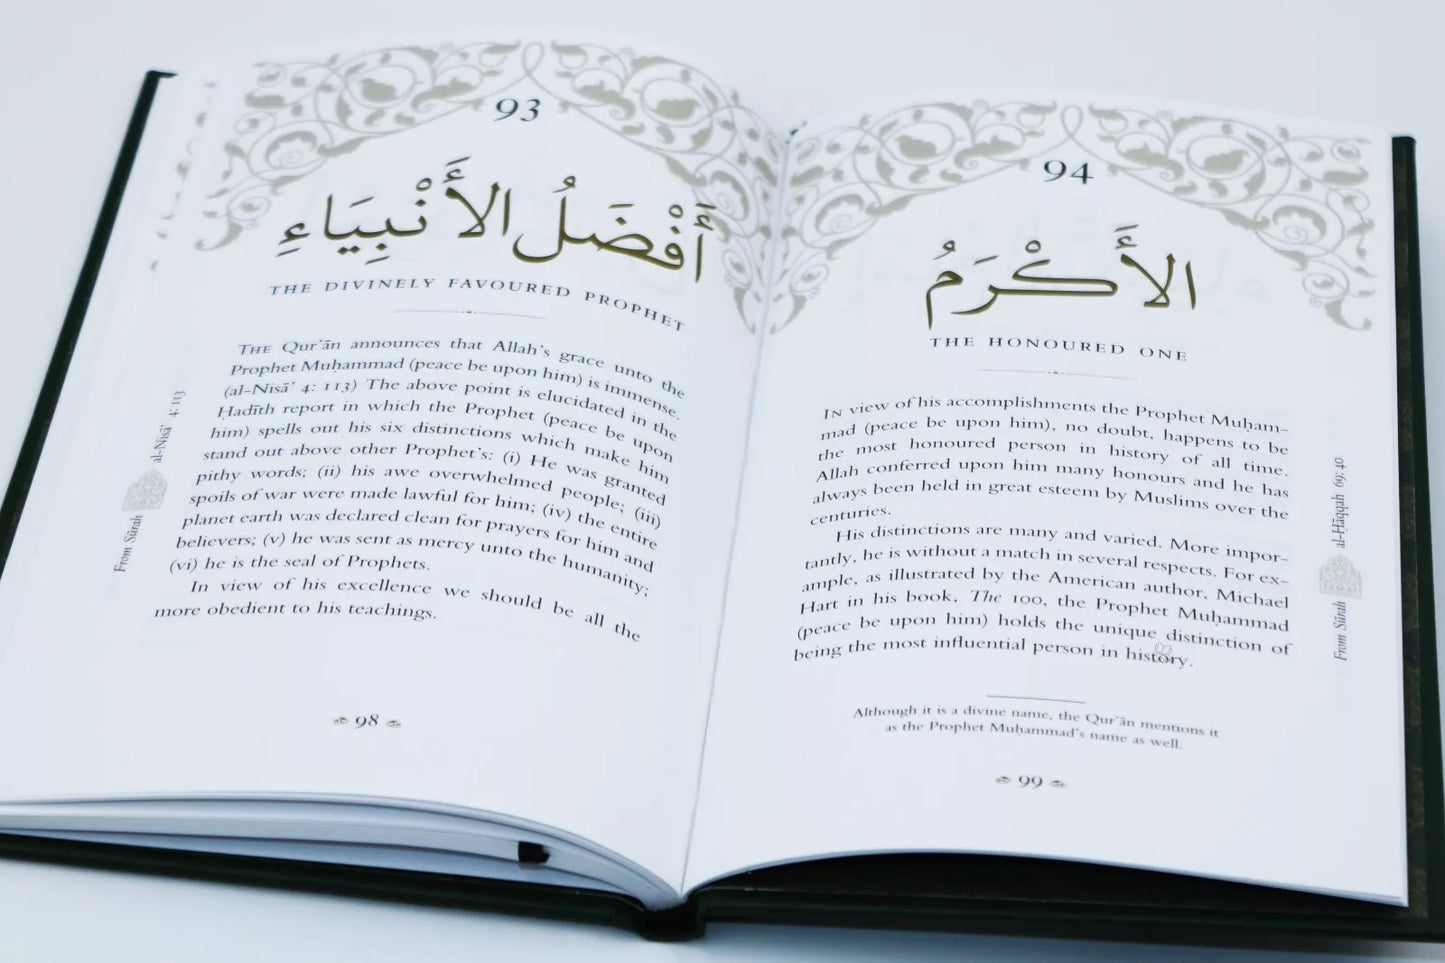 93
أَفْضَلُ الأَنْبِيَاءِ
THE DIVINELY FAVOURED PROPHET
THE Qur'ān announces that Allah's grace unto the
Prophet Muḥammad (peace be upon him) is immense.
(al-Nisā' 4: 113) The above point is elucidated in the
Hadīth report in which the Prophet (peace be upon
him) spells out his six distinctions which make him
stand out above other Prophet's: (i) He was granted
pithy words; (ii) his awe overwhelmed people; (iii)
spoils of war were made lawful for him; (iv) the entire
planet earth was declared clean for prayers for him and
believers; (v) he was sent as mercy unto the humanity;
(vi) he is the seal of Prophets.
In view of his excellence we should be all the
more obedient to his teachings.
From Sūrah al-Nisā' 4: 113
98
94
الأَكْرَمُ
THE HONOURED ONE
IN view of his accomplishments the Prophet Muḥam-
mad (peace be upon him), no doubt, happens to be
the most honoured person in history of all time.
Allah conferred upon him many honours and he has
always been held in great esteem by Muslims over the
centuries.
His distinctions are many and varied. More impor-
tantly, he is without a match in several respects. For ex-
ample, as illustrated by the American author, Michael
Hart in his book, The 100, the Prophet Muḥammad
(peace be upon him) holds the unique distinction of
being the most influential person in history.
Although it is a divine name, the Qur'ān mentions it
as the Prophet Muḥammad's name as well.
From Sūrah al-Ḥāqqah 69: 40
99